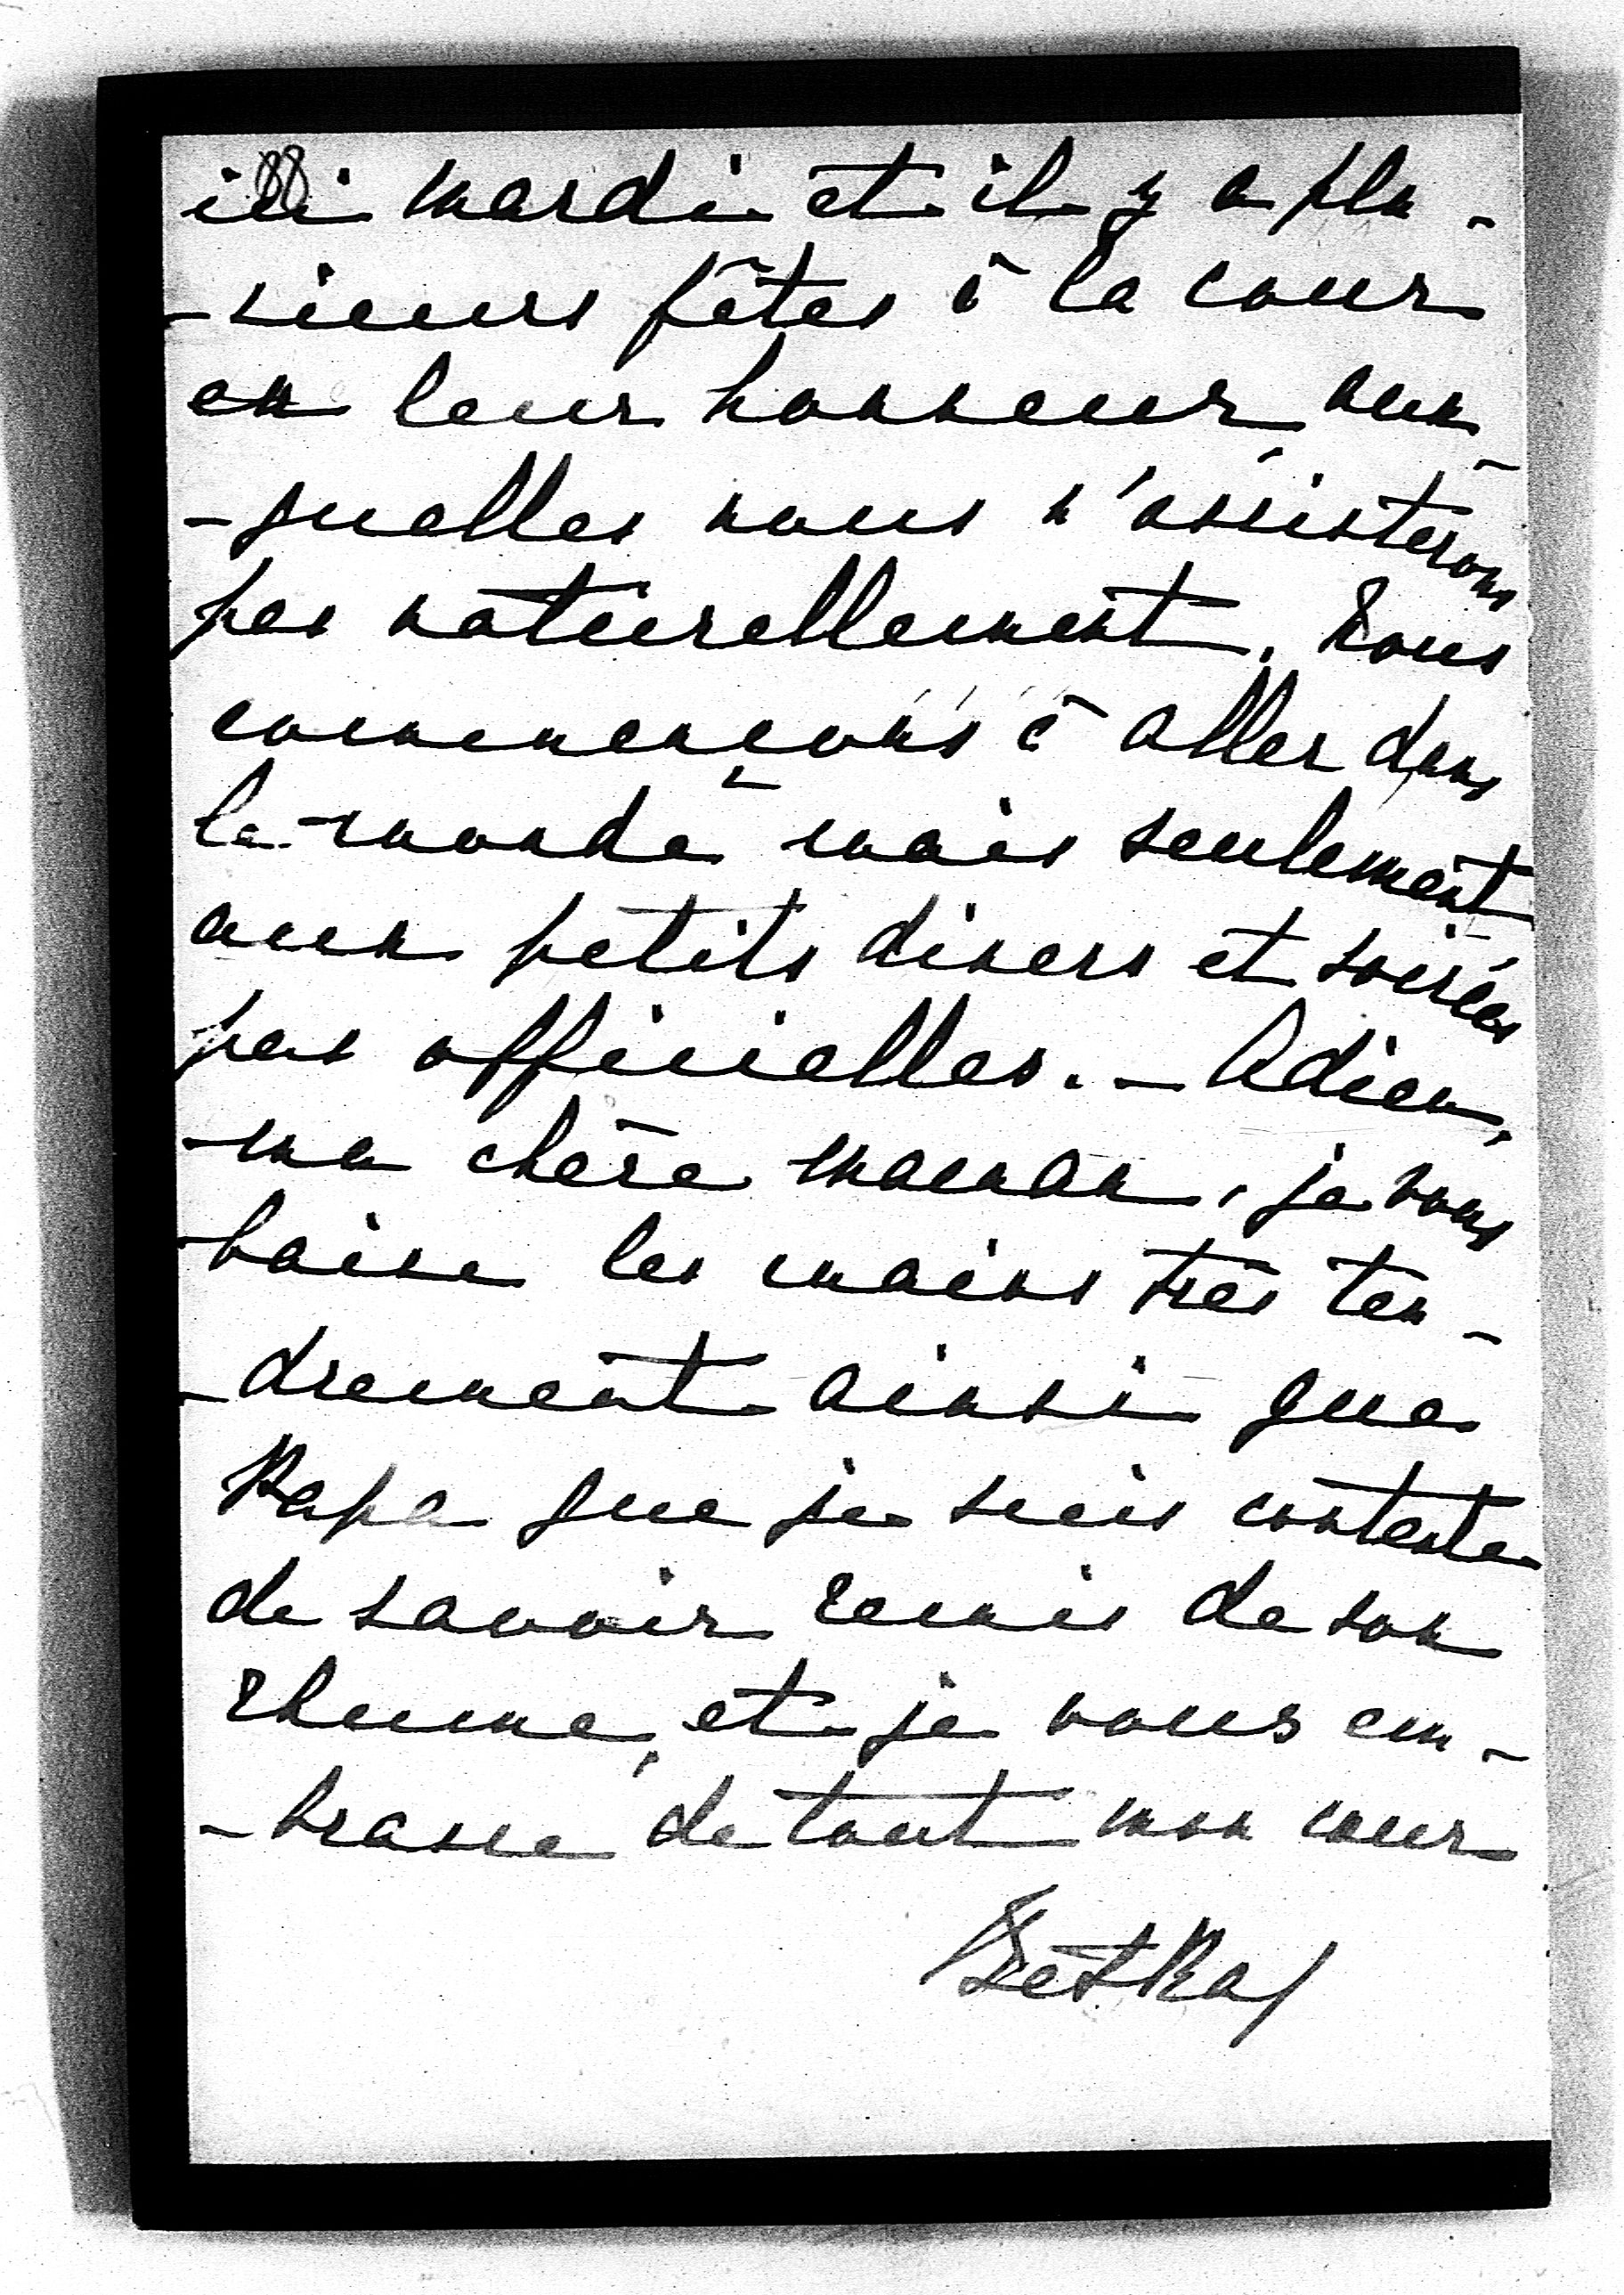 ici mardi et il y a plu-
-sieurs fêtes à la cour
en leur honneur, aux-
-quelles nous n'assisterons
pas naturellement. Nous
commençons à aller dans
le monde mais seulement
aux petits diners et soirées
pas officielles. - Adieu,
ma chère maman, je vous
baise les mains très ten-
-drement ainsi que
Papa que je suis contente
de savoir remis de son
rhume, et je vous em-
-brasse de tout mon cœur